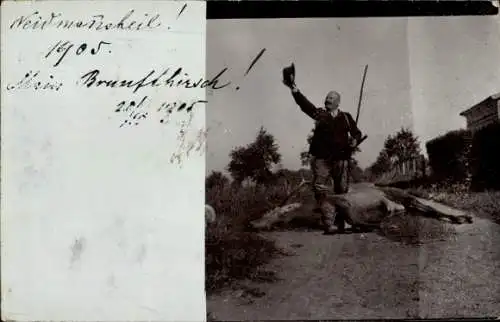 Weidmannsheil!
1905.
Mein Brunfthirsch!
20/IX 1905